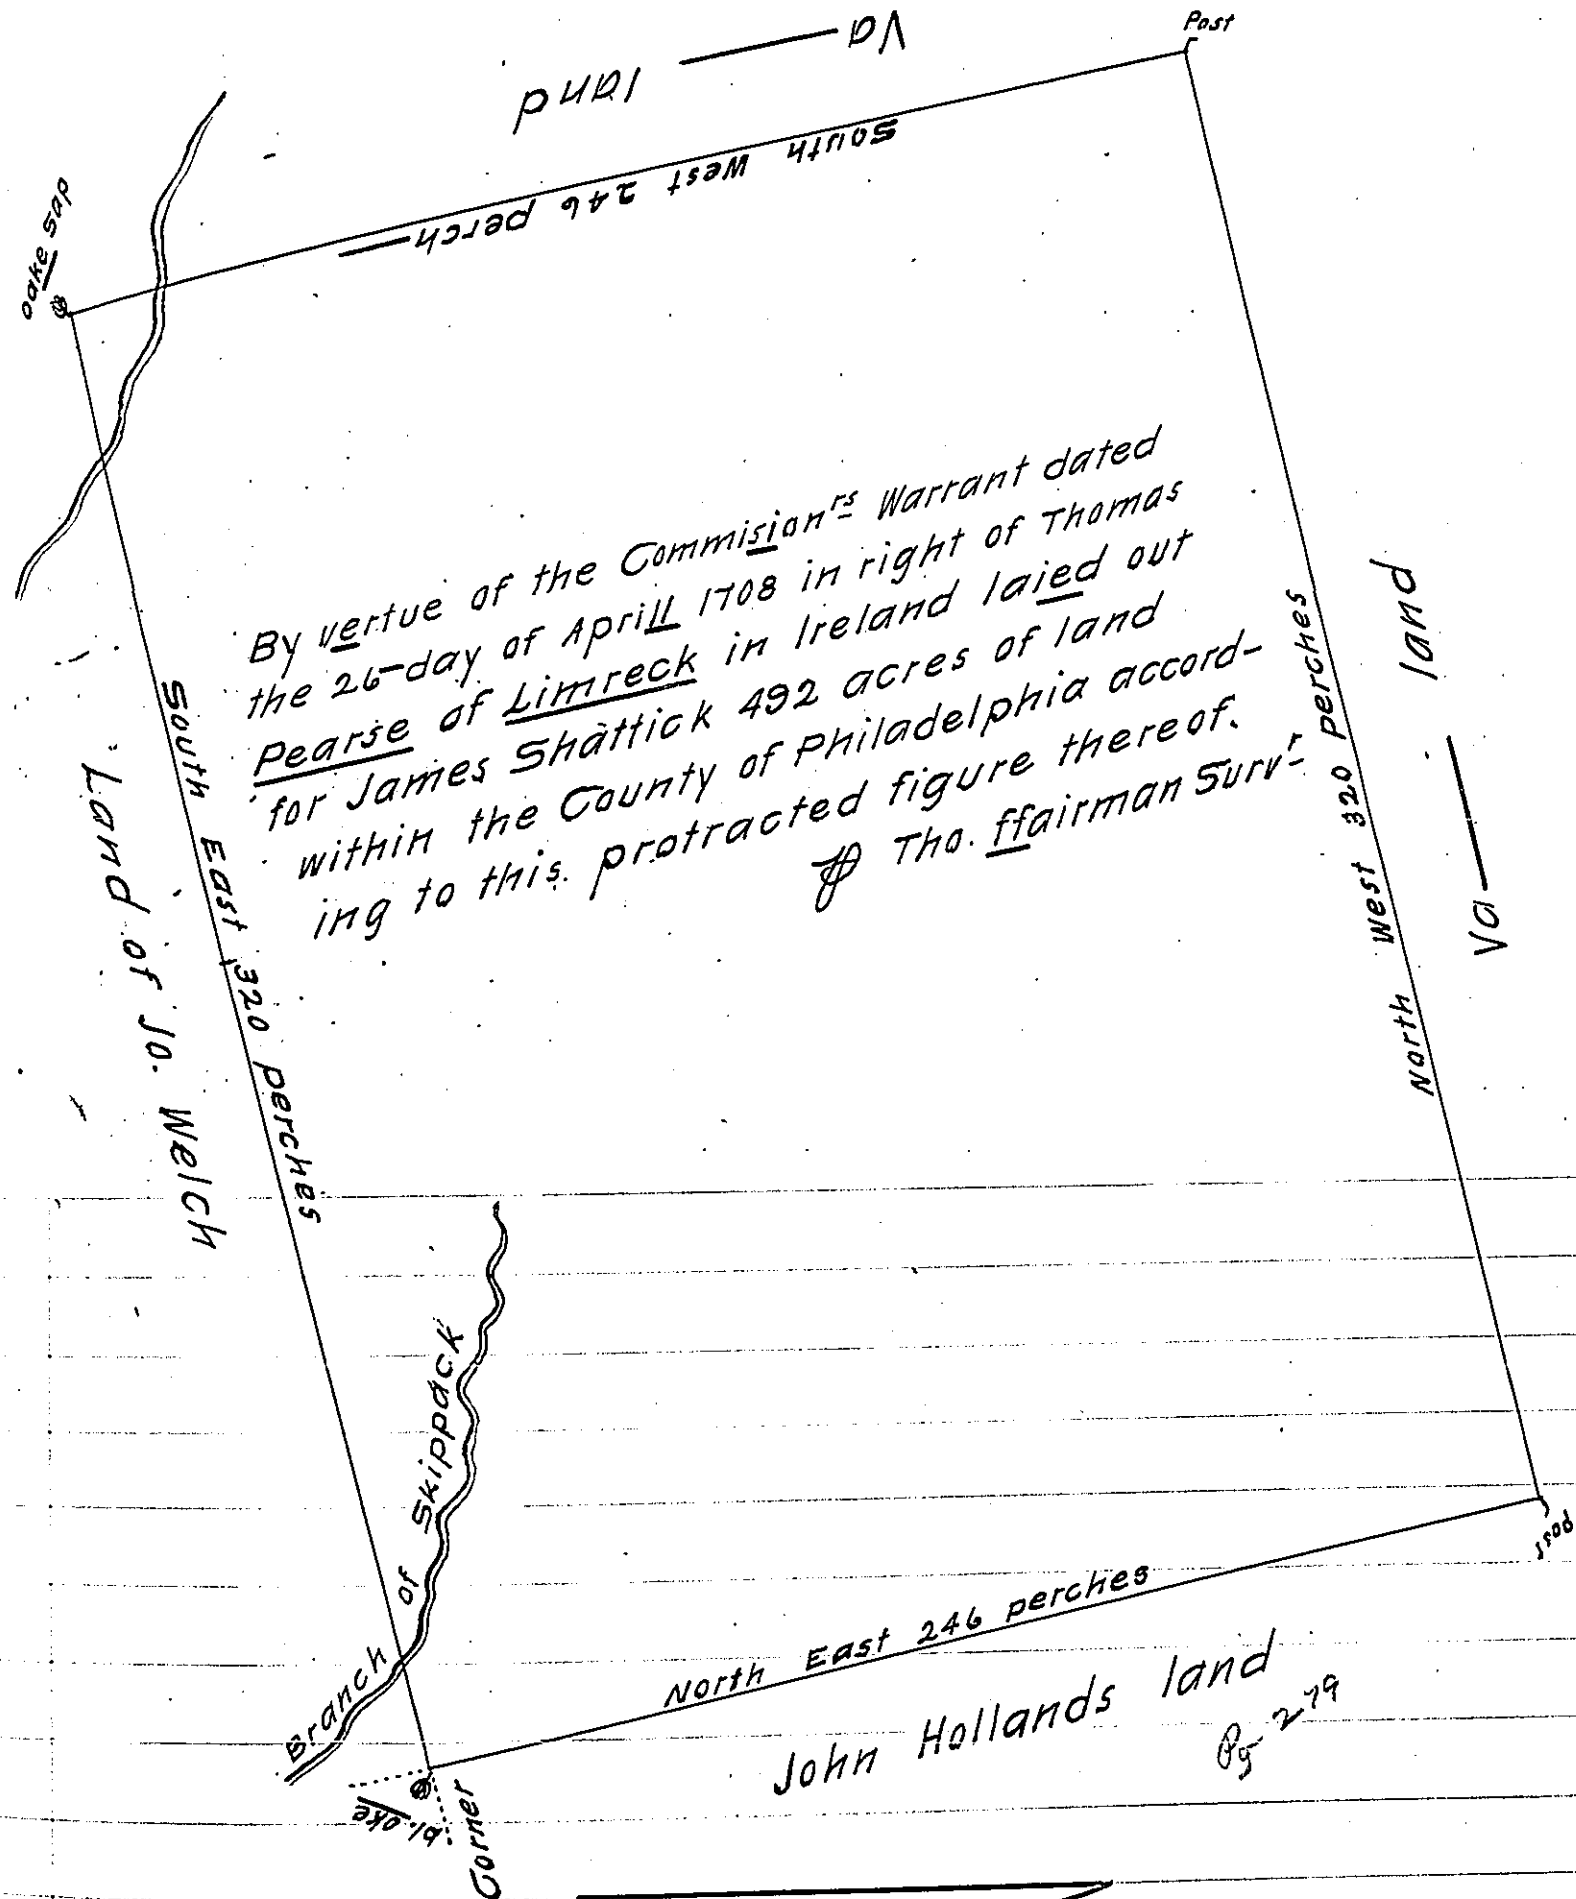 Va —— land
Post
South West 246 perch —
oake sap
By vertue of the Commisionrs Warrant dated
the 26-day of Aprill 1708 in right of Thomas
Pearse of Limreck in Ireland laied out
for James Shattick 492 acres of land
within the County of Philadelphia accord-
ing to this protracted figure thereof.
Tho. ffairman Survr
South East 320 perches
Land of Jo. Welch
North West 320 perches
Va —— land
Branch of Skippack
post
North East 246 perches
John Hollands land
Pg 279
bl. oke
Corner